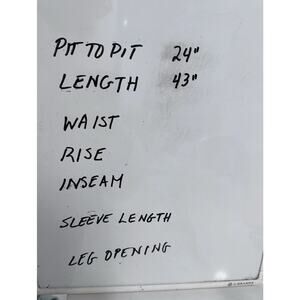 PIT TO PIT 24"
LENGTH 43"
WAIST
RISE
INSEAM
SLEEVE LENGTH
LEG OPENING